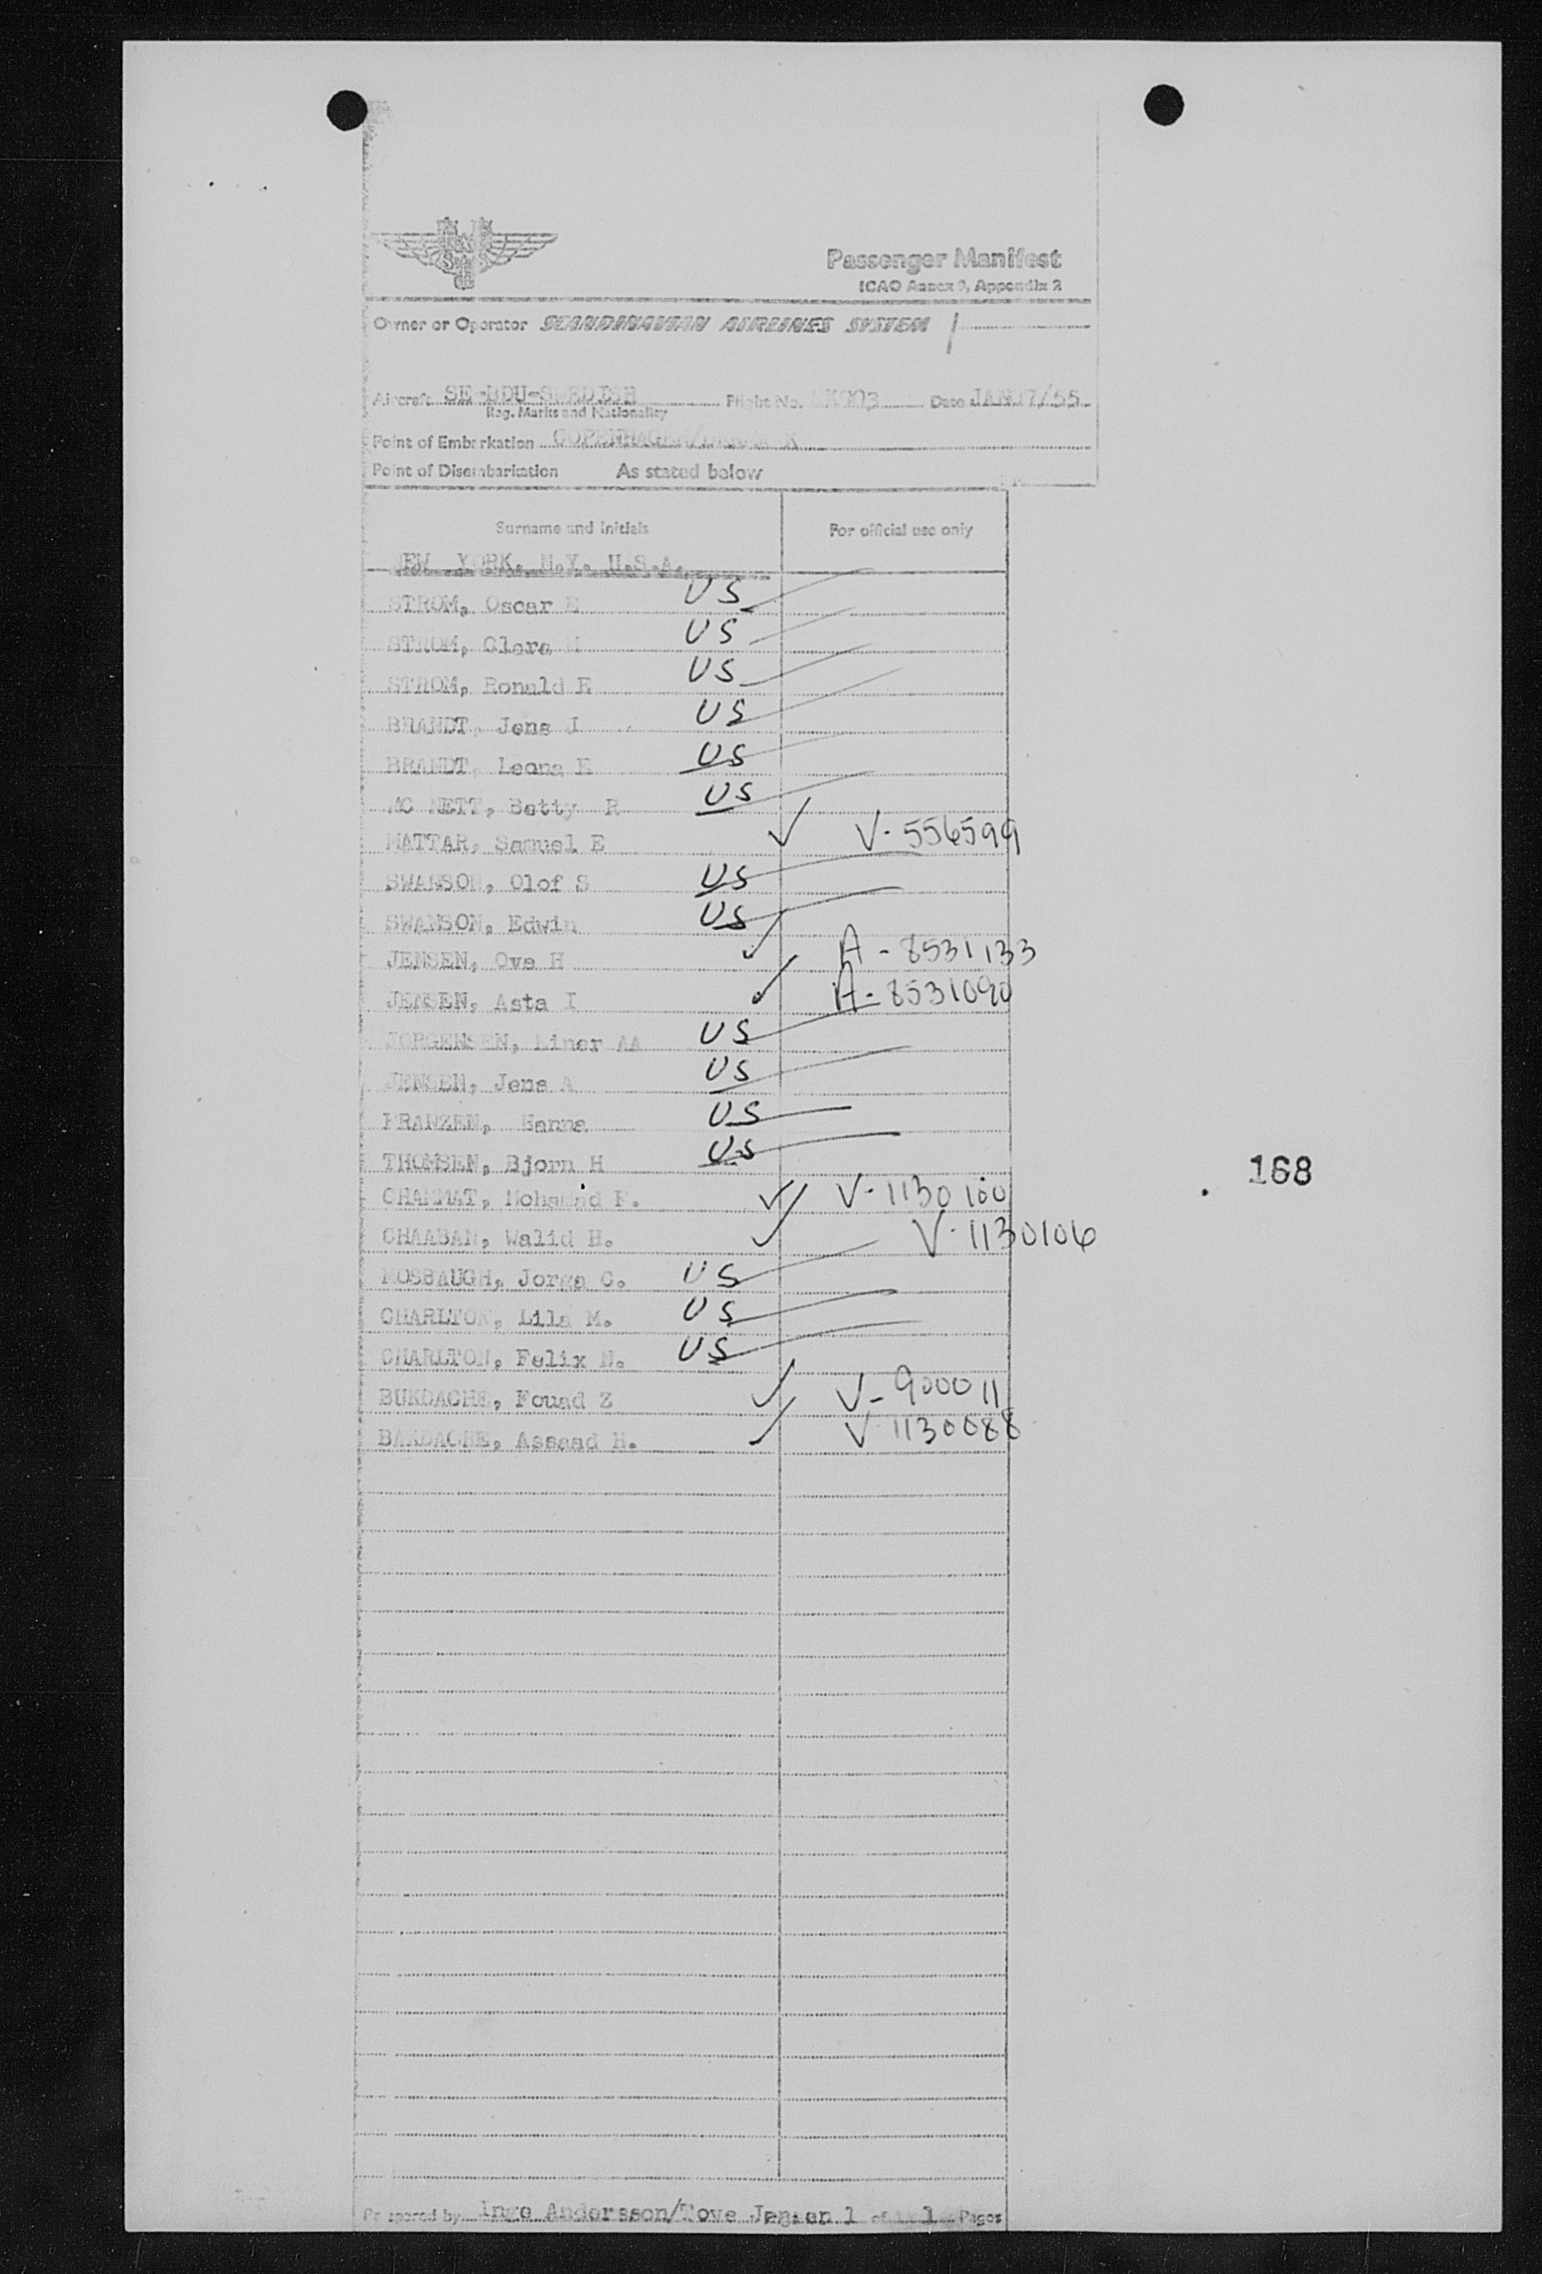 Passenger Manifest
ICAO Annex 9, Appendix 2
Owner or Operator SCANDINAVIAN AIRLINES SYSTEM
Aircraft SE-BDU-SWEDISH Flight No. Date JAN 17/55
Reg. Marks and Nationality
Point of Embarkation COPENHAGEN/
Point of Disembarkation As stated below
Surname and Initials For official use only
NEW YORK, N.Y. U.S.A.
STROM, Oscar E US
STROM, Clara US
STROM, Ronald E US
BRANDT, Jens J US
BRANDT, Leona E US
MC NETT, Betty R US
MATTAR, Samuel E V-556599
SWANSON, Olof S US
SWANSON, Edwin US
JENSEN, Ove H A-8531133
JENSEN, Asta I A-8531090
JORGENSEN, Einer AA US
JENSEN, Jens A US
FRANZEN, Hanna US
THOMSEN, Bjorn H US
CHAMMAT, V-1130100
168
CHAABAN, Walid H. V-1130106
MOSBAUGH, Jorga C. US
CHARLTON, Lila M. US
CHARLTON, Felix N. US
BUKDACHE, Fouad Z V-900011
BAKDACHE, Assaad H. V 1130088
Prepared by Inge Andersson/Tove Jensen 1 of 1 Pages